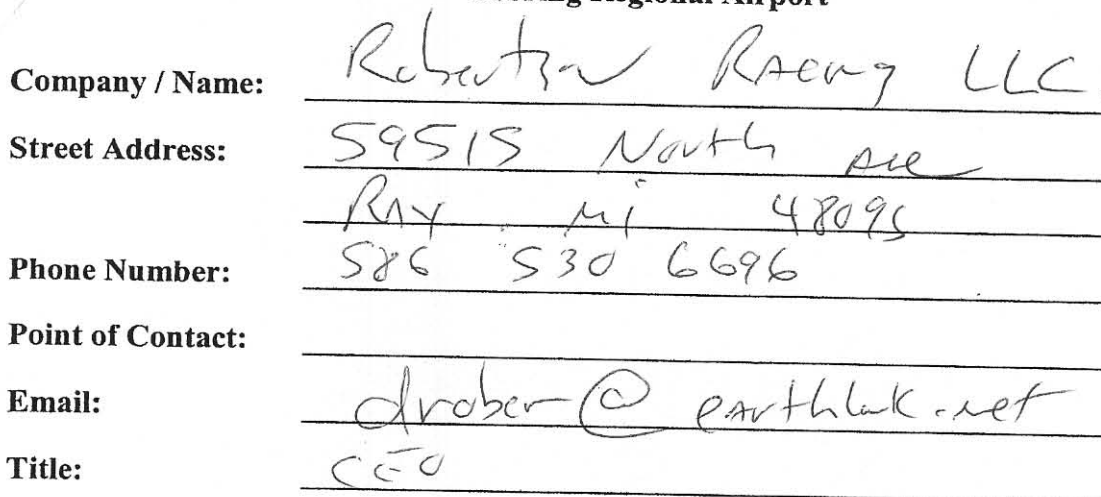 Regional Airport
Company / Name: Robertson Racing LLC
Street Address: 59515 North Ave
Ray Mi 48096
Phone Number: 586 530 6696
Point of Contact:
Email: drober@earthlink.net
Title: CEO